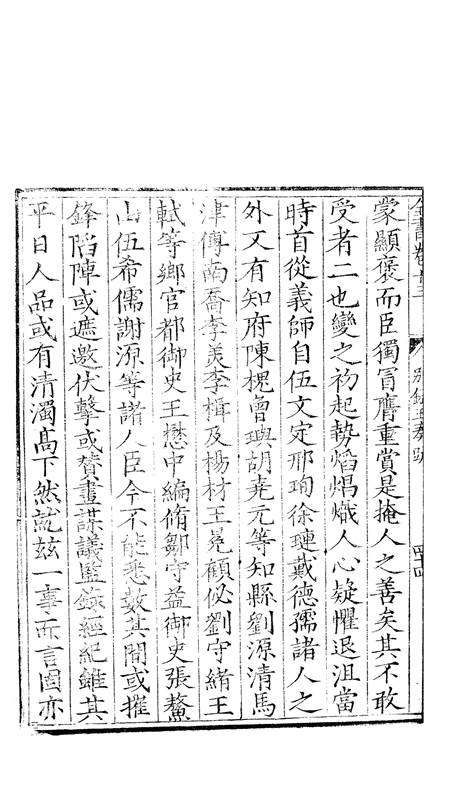 全書卷十三 別錄五奏疏 四十四
蒙顯褒而臣獨冒膺重賞是掩人之善矣其不敢
受者二也變之初起勢焰焻熾人心疑懼退沮當
時首從義師自伍文定邢珣徐璉戴德孺諸人之
外又有知府陳槐曾璵胡堯元等知縣劉源清馬
津傅南喬李美李楫及楊材王冕顧佖劉守緒王
軾等鄉官都御史王懋中編脩鄒守益御史張鰲
山伍希儒謝源等諸人臣今不能悉數其間或摧
鋒陷陣或遮邀伏擊或贊畫謀議監錄經紀雖其
平日人品或有清濁高下然就茲一事而言固亦